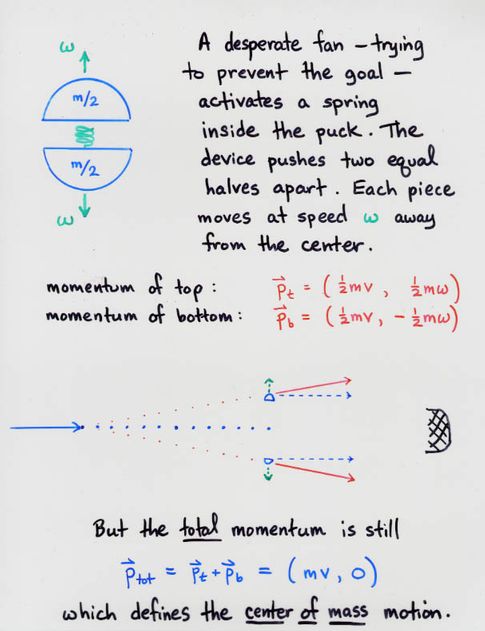 ω
m/2
m/2
ω
A desperate fan – trying
to prevent the goal –
activates a spring
inside the puck. The
device pushes two equal
halves apart. Each piece
moves at speed ω away
from the center.
momentum of top: p⃗_t = (½mv, ½mω)
momentum of bottom: p⃗_b = (½mv, -½mω)
But the total momentum is still
p⃗_tot = p⃗_t + p⃗_b = (mv, 0)
which defines the center of mass motion.